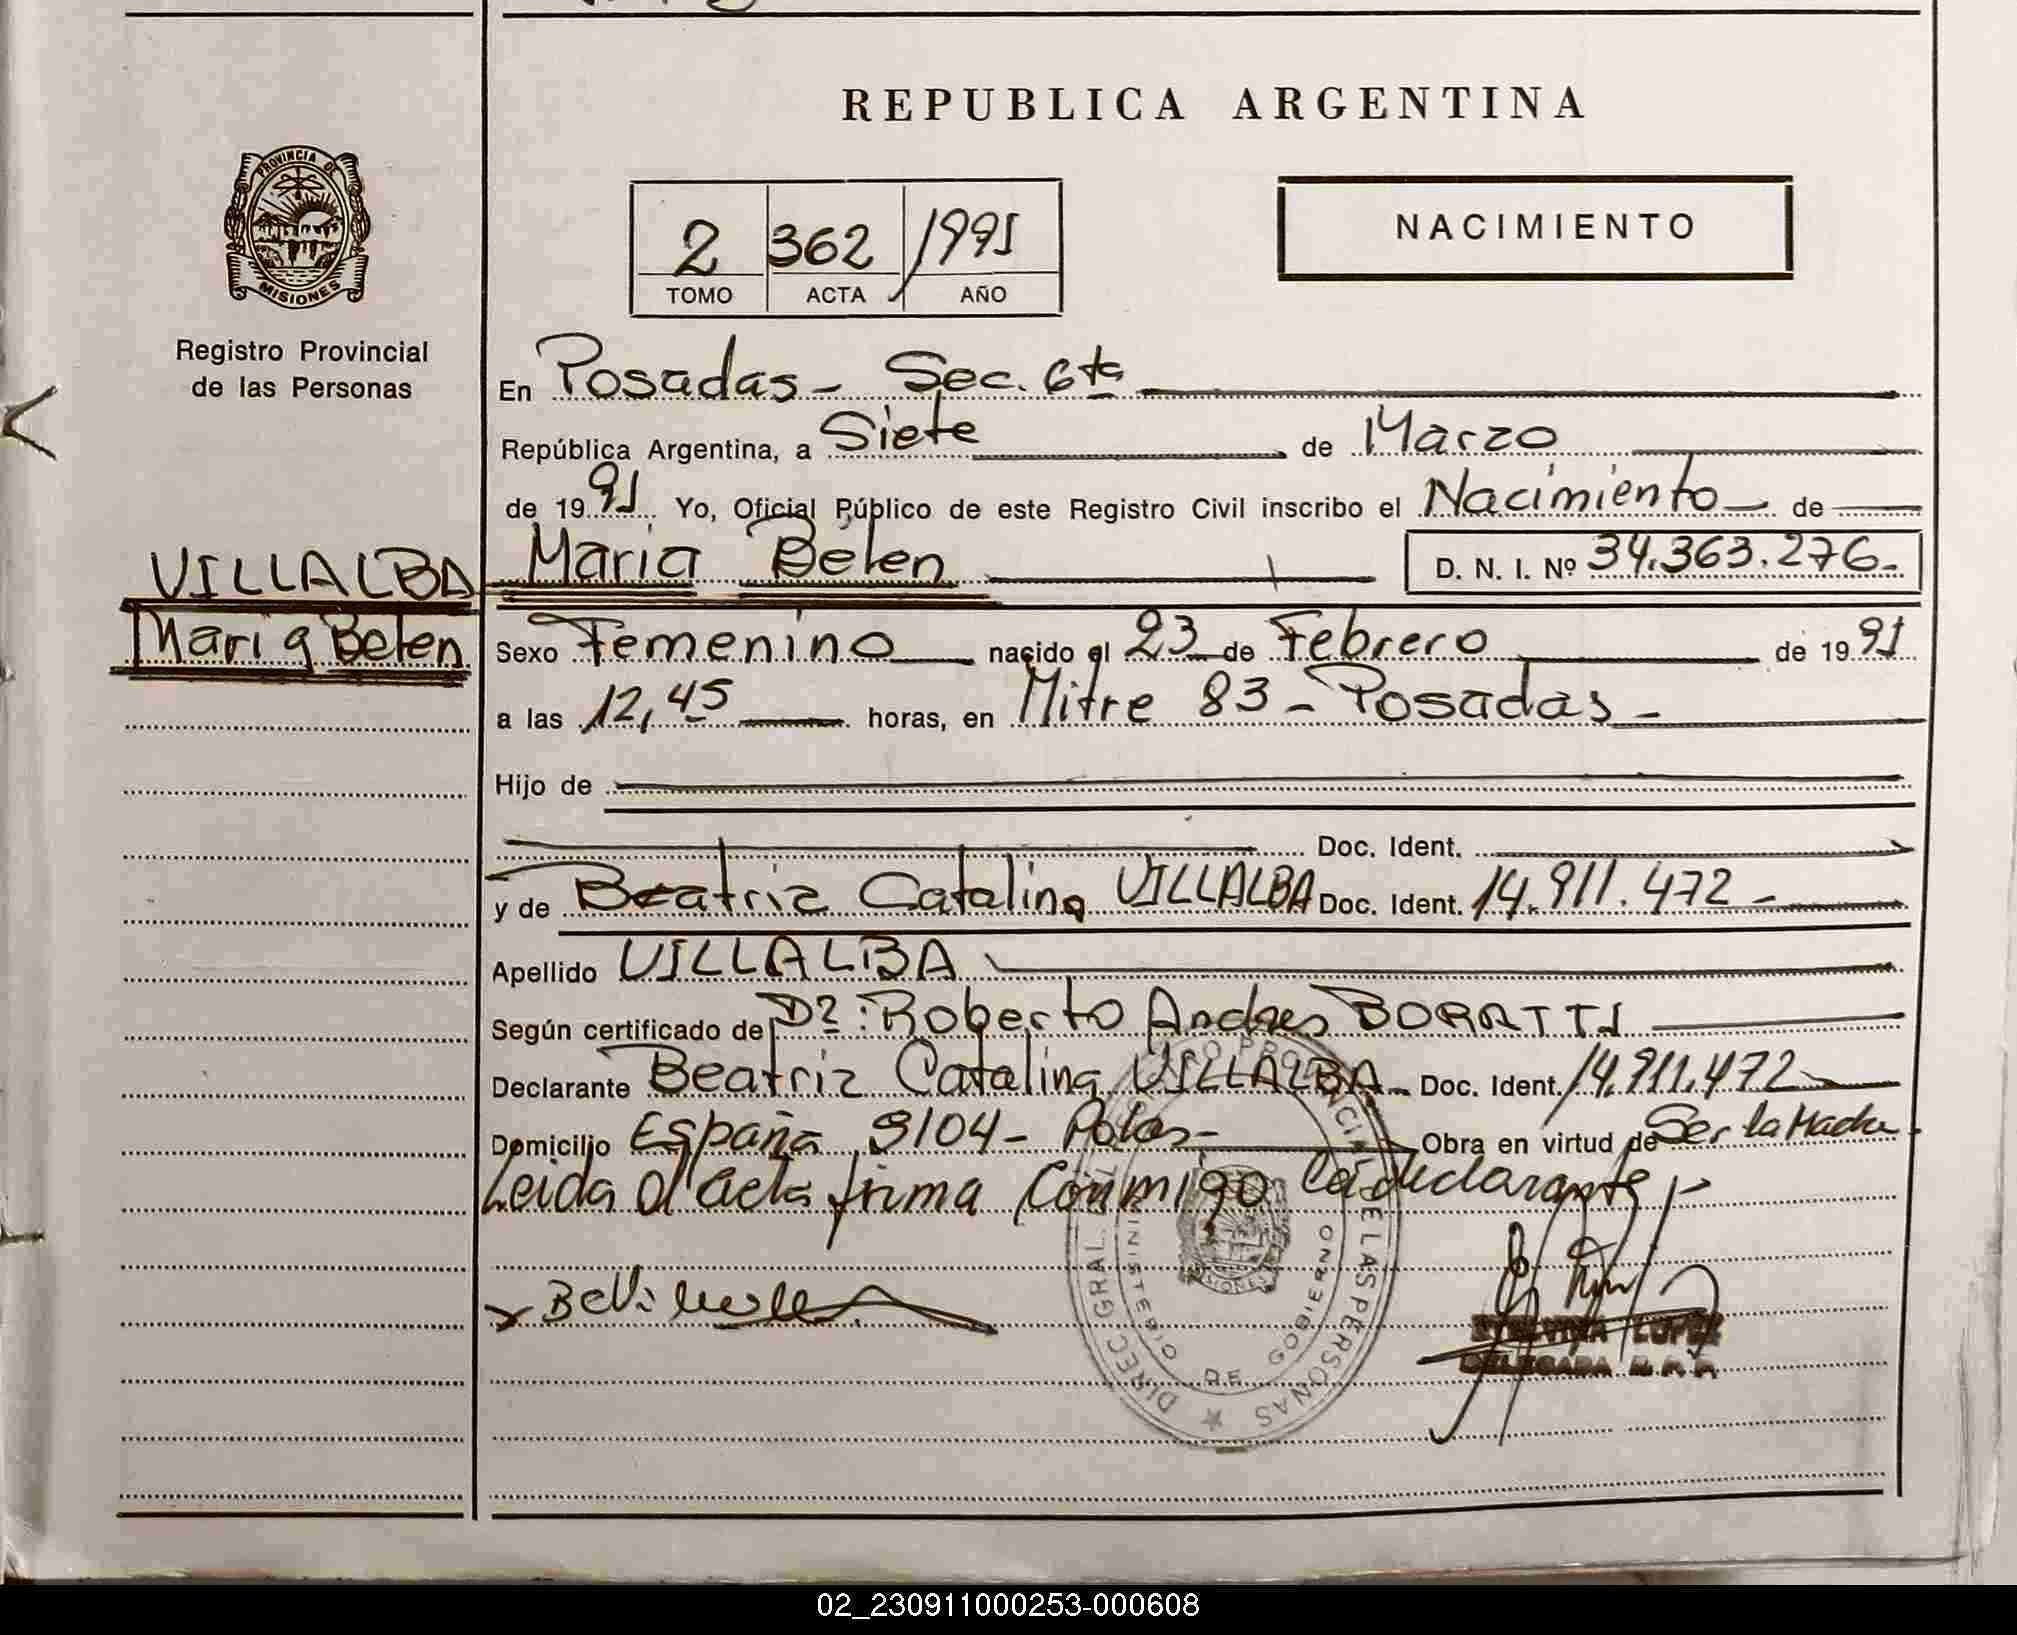 REPUBLICA ARGENTINA
PROVINCIA DE
MISIONES
Registro Provincial
de las Personas
2 362 1991
TOMO ACTA AÑO
NACIMIENTO
En Posadas - Sec. 6ta
República Argentina, a Siete de Marzo
de 1991 Yo, Oficial Público de este Registro Civil inscribo el Nacimiento de
VILLALBA
Maria Belen
Maria Belen D. N. I. Nº 34.363.276-
Sexo Femenino nacido el 23 de Febrero de 1991
a las 12,45 horas, en Mitre 83 - Posadas -
Hijo de
Doc. Ident.
y de Beatriz Catalina VILLALBA Doc. Ident. 14.911.472 -
Apellido VILLALBA
Según certificado de Dº: Roberto Andres
Declarante Beatriz Catalina VILLALBA - Doc. Ident. 14.911.472
Domicilio España 9104 - Obra en virtud de Ser la Madre
Leida el acta firma conmigo la declarante
DIREC. GRAL. PROVINCIAL DE LAS PERSONAS
MINISTERIO DE GOBIERNO
MISIONES
LOPEZ
DELEGADA
02_230911000253-000608